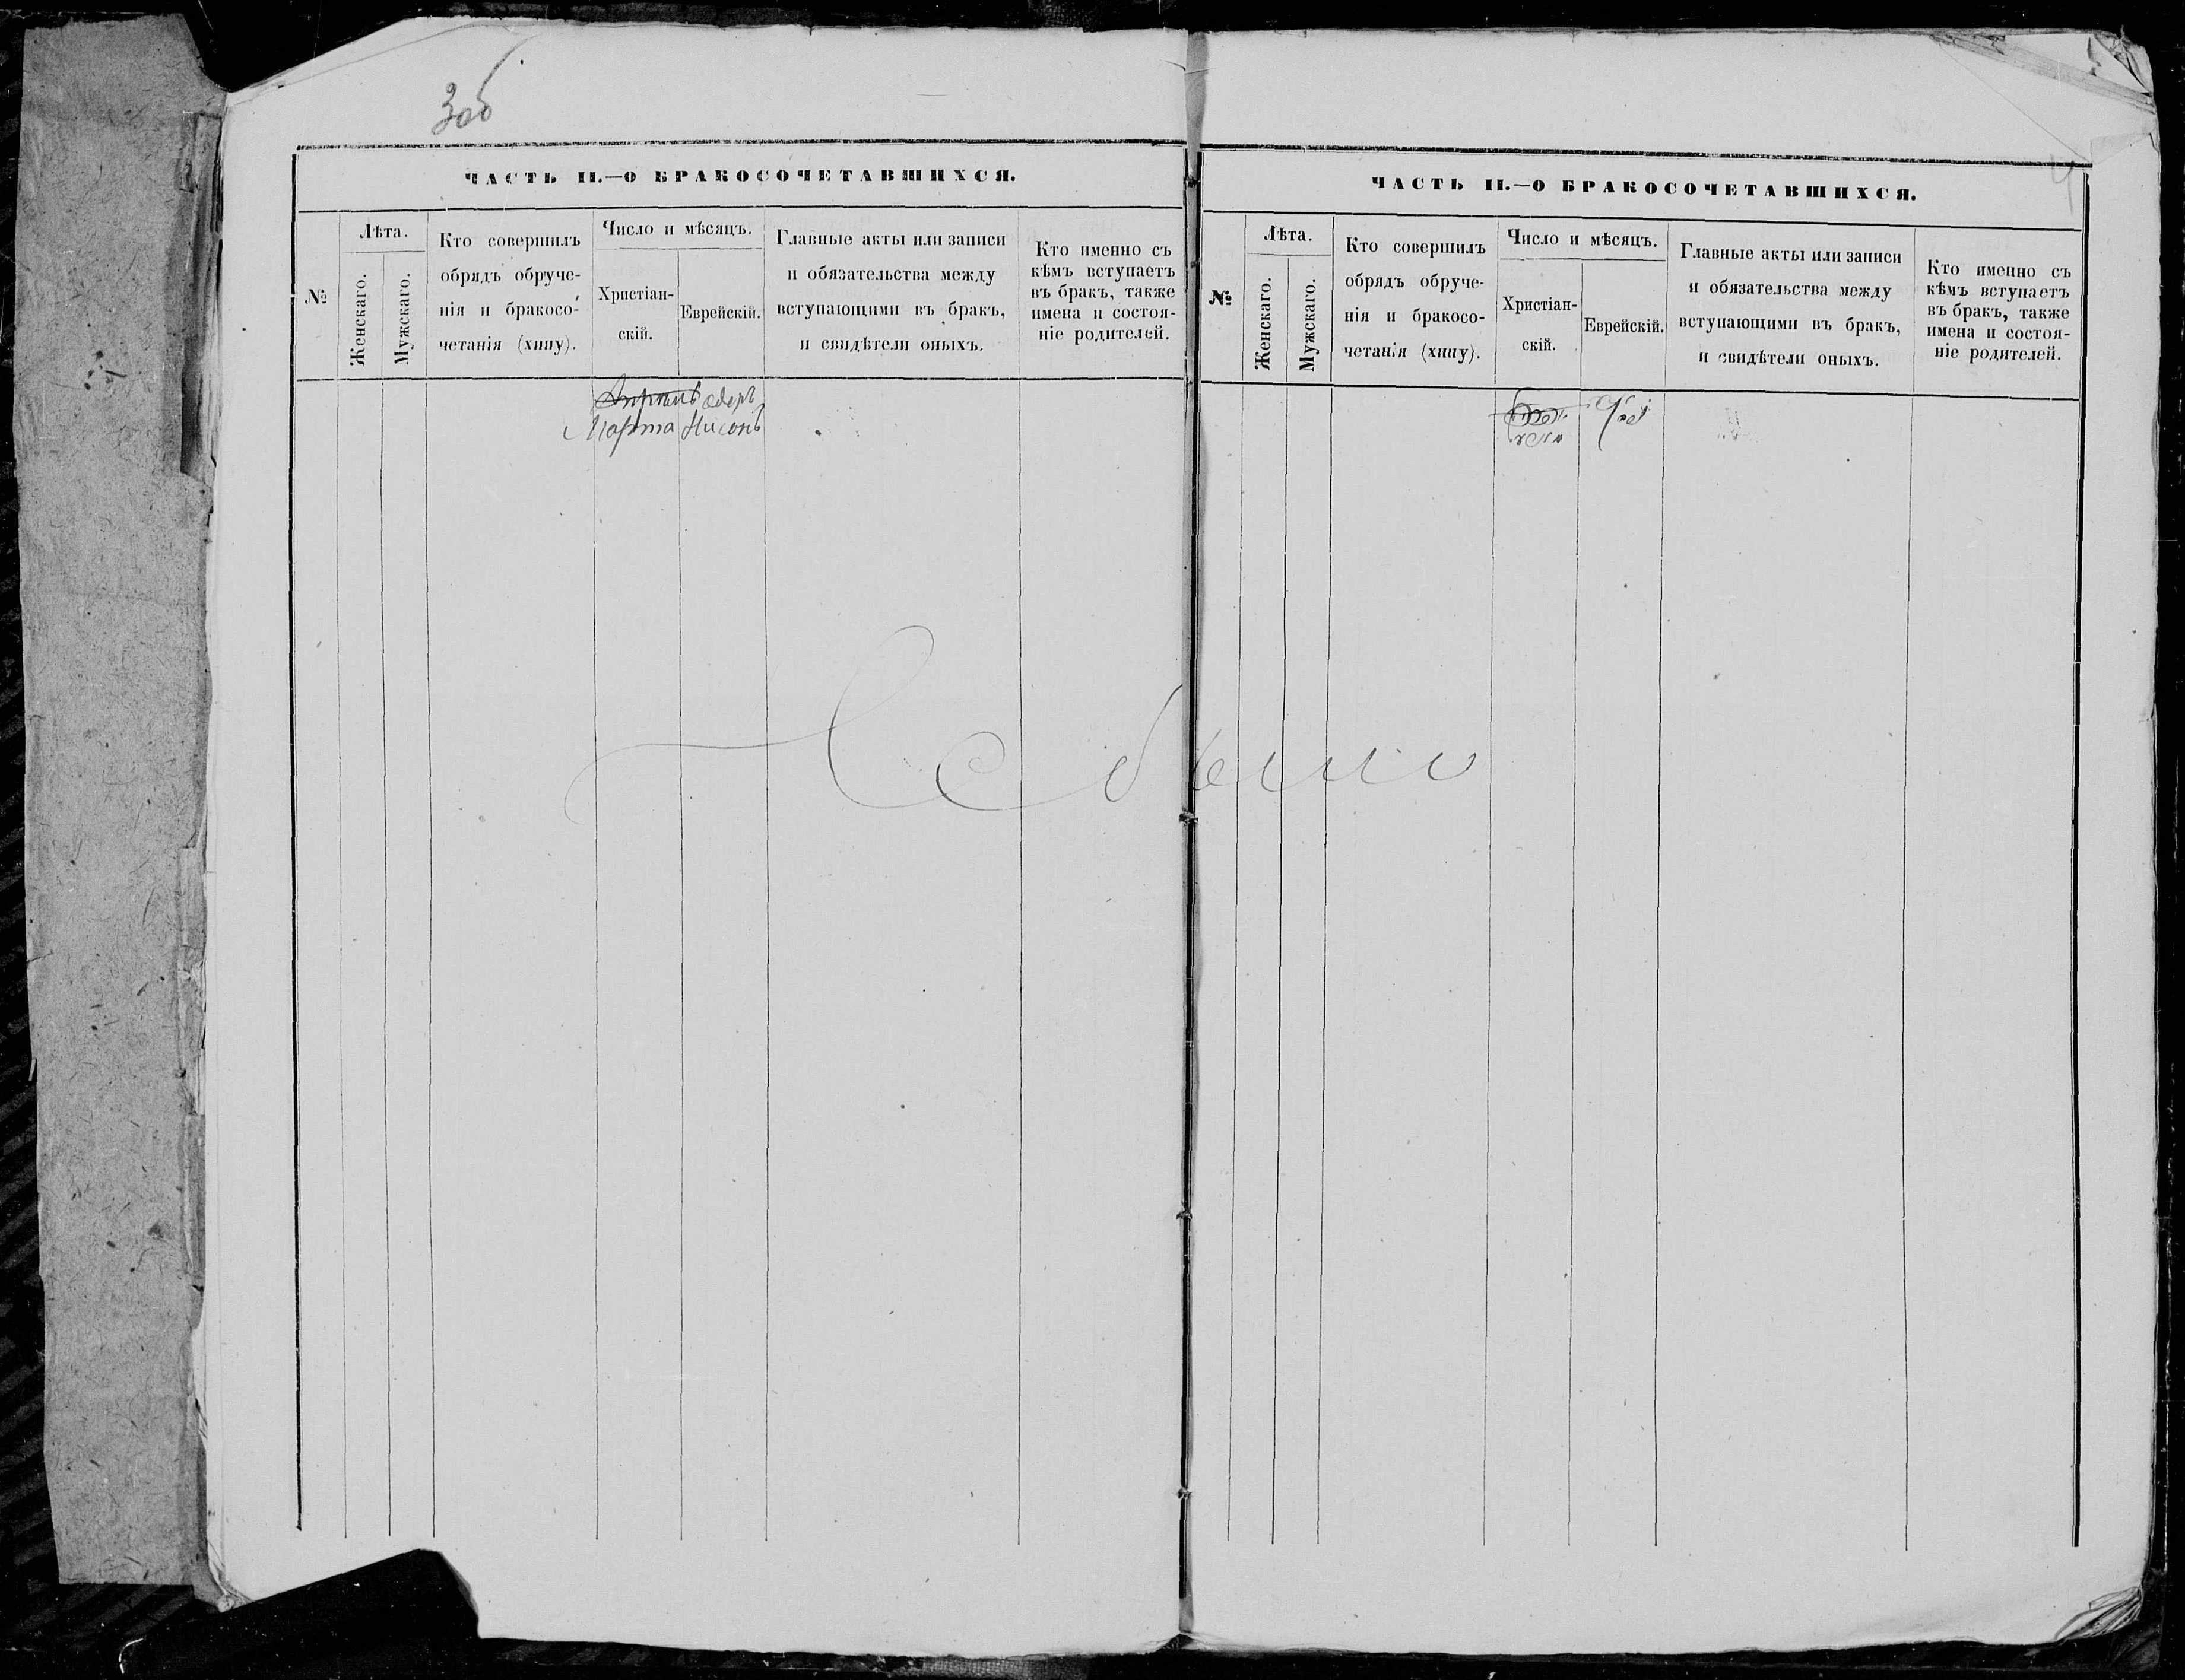 3об
ЧАСТЬ II.—О БРАКОСОЧЕТАВШИХСЯ.
№
Лѣта.
Женскаго.
Мужскаго.
Кто совершилъ
обрядъ обруче-
нія и бракосо-
четанія (хипу).
Число и мѣсяцъ.
Христіан-
скій.
Еврейскій.
Главные акты или записи
и обязательства между
вступающими въ бракъ,
и свидѣтели оныхъ.
Кто именно съ
кѣмъ вступаетъ
въ бракъ, также
имена и состоя-
ніе родителей.
адеръ
Марта Нисонъ
Не было
4
ЧАСТЬ II.—О БРАКОСОЧЕТАВШИХСЯ.
№
Лѣта.
Женскаго.
Мужскаго.
Кто совершилъ
обрядъ обруче-
нія и бракосо-
четанія (хипу).
Число и мѣсяцъ.
Христіан-
скій.
Еврейскій.
Главные акты или записи
и обязательства между
вступающими въ бракъ,
и свидѣтели оныхъ.
Кто именно съ
кѣмъ вступаетъ
въ бракъ, также
имена и состоя-
ніе родителей.